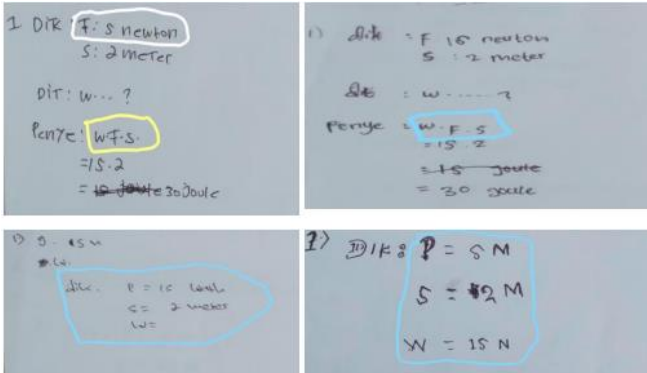 1 DIK F: 5 newton
S: 2 meter
DIT: W... ?
Penye: W F.S.
=15.2
= 30 joule
1) dik : F 15 neuton
S : 2 meter
dit : W ...... ?
Penye = W. F. S
= 15 2
= 15 joule
= 30 joule
1) 15 N
dik. P = 15
S = 2 meter
W =
1) DIK: P = 5 M
S = 2 M
W = 15 N